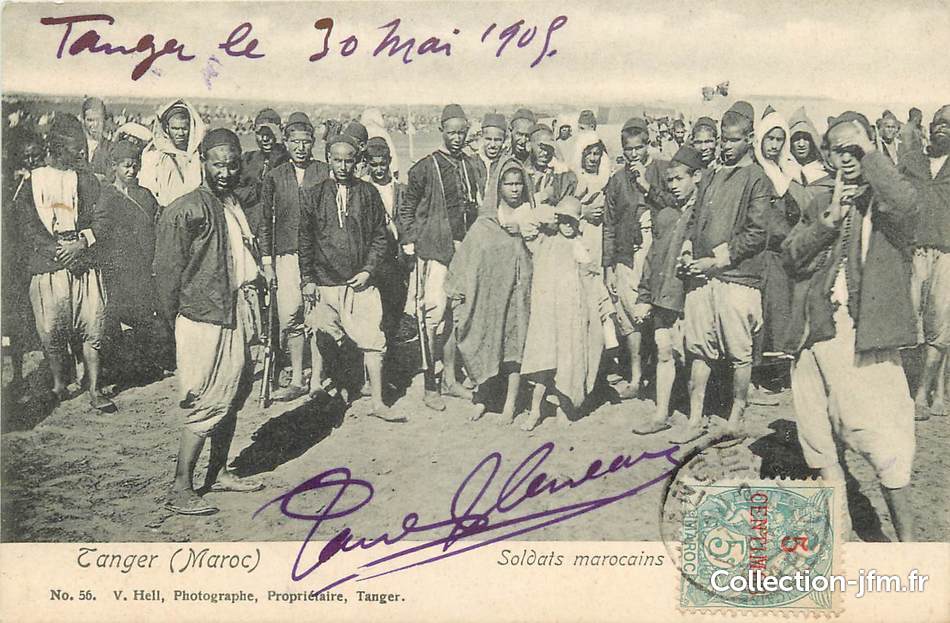 Tanger le 30 Mai 1905.
Tanger (Maroc)
Soldats marocains
No. 56. V. Hell, Photographe, Propriétaire, Tanger.
5
CENTIMOS
5c
MAROC
Collection-jfm.fr